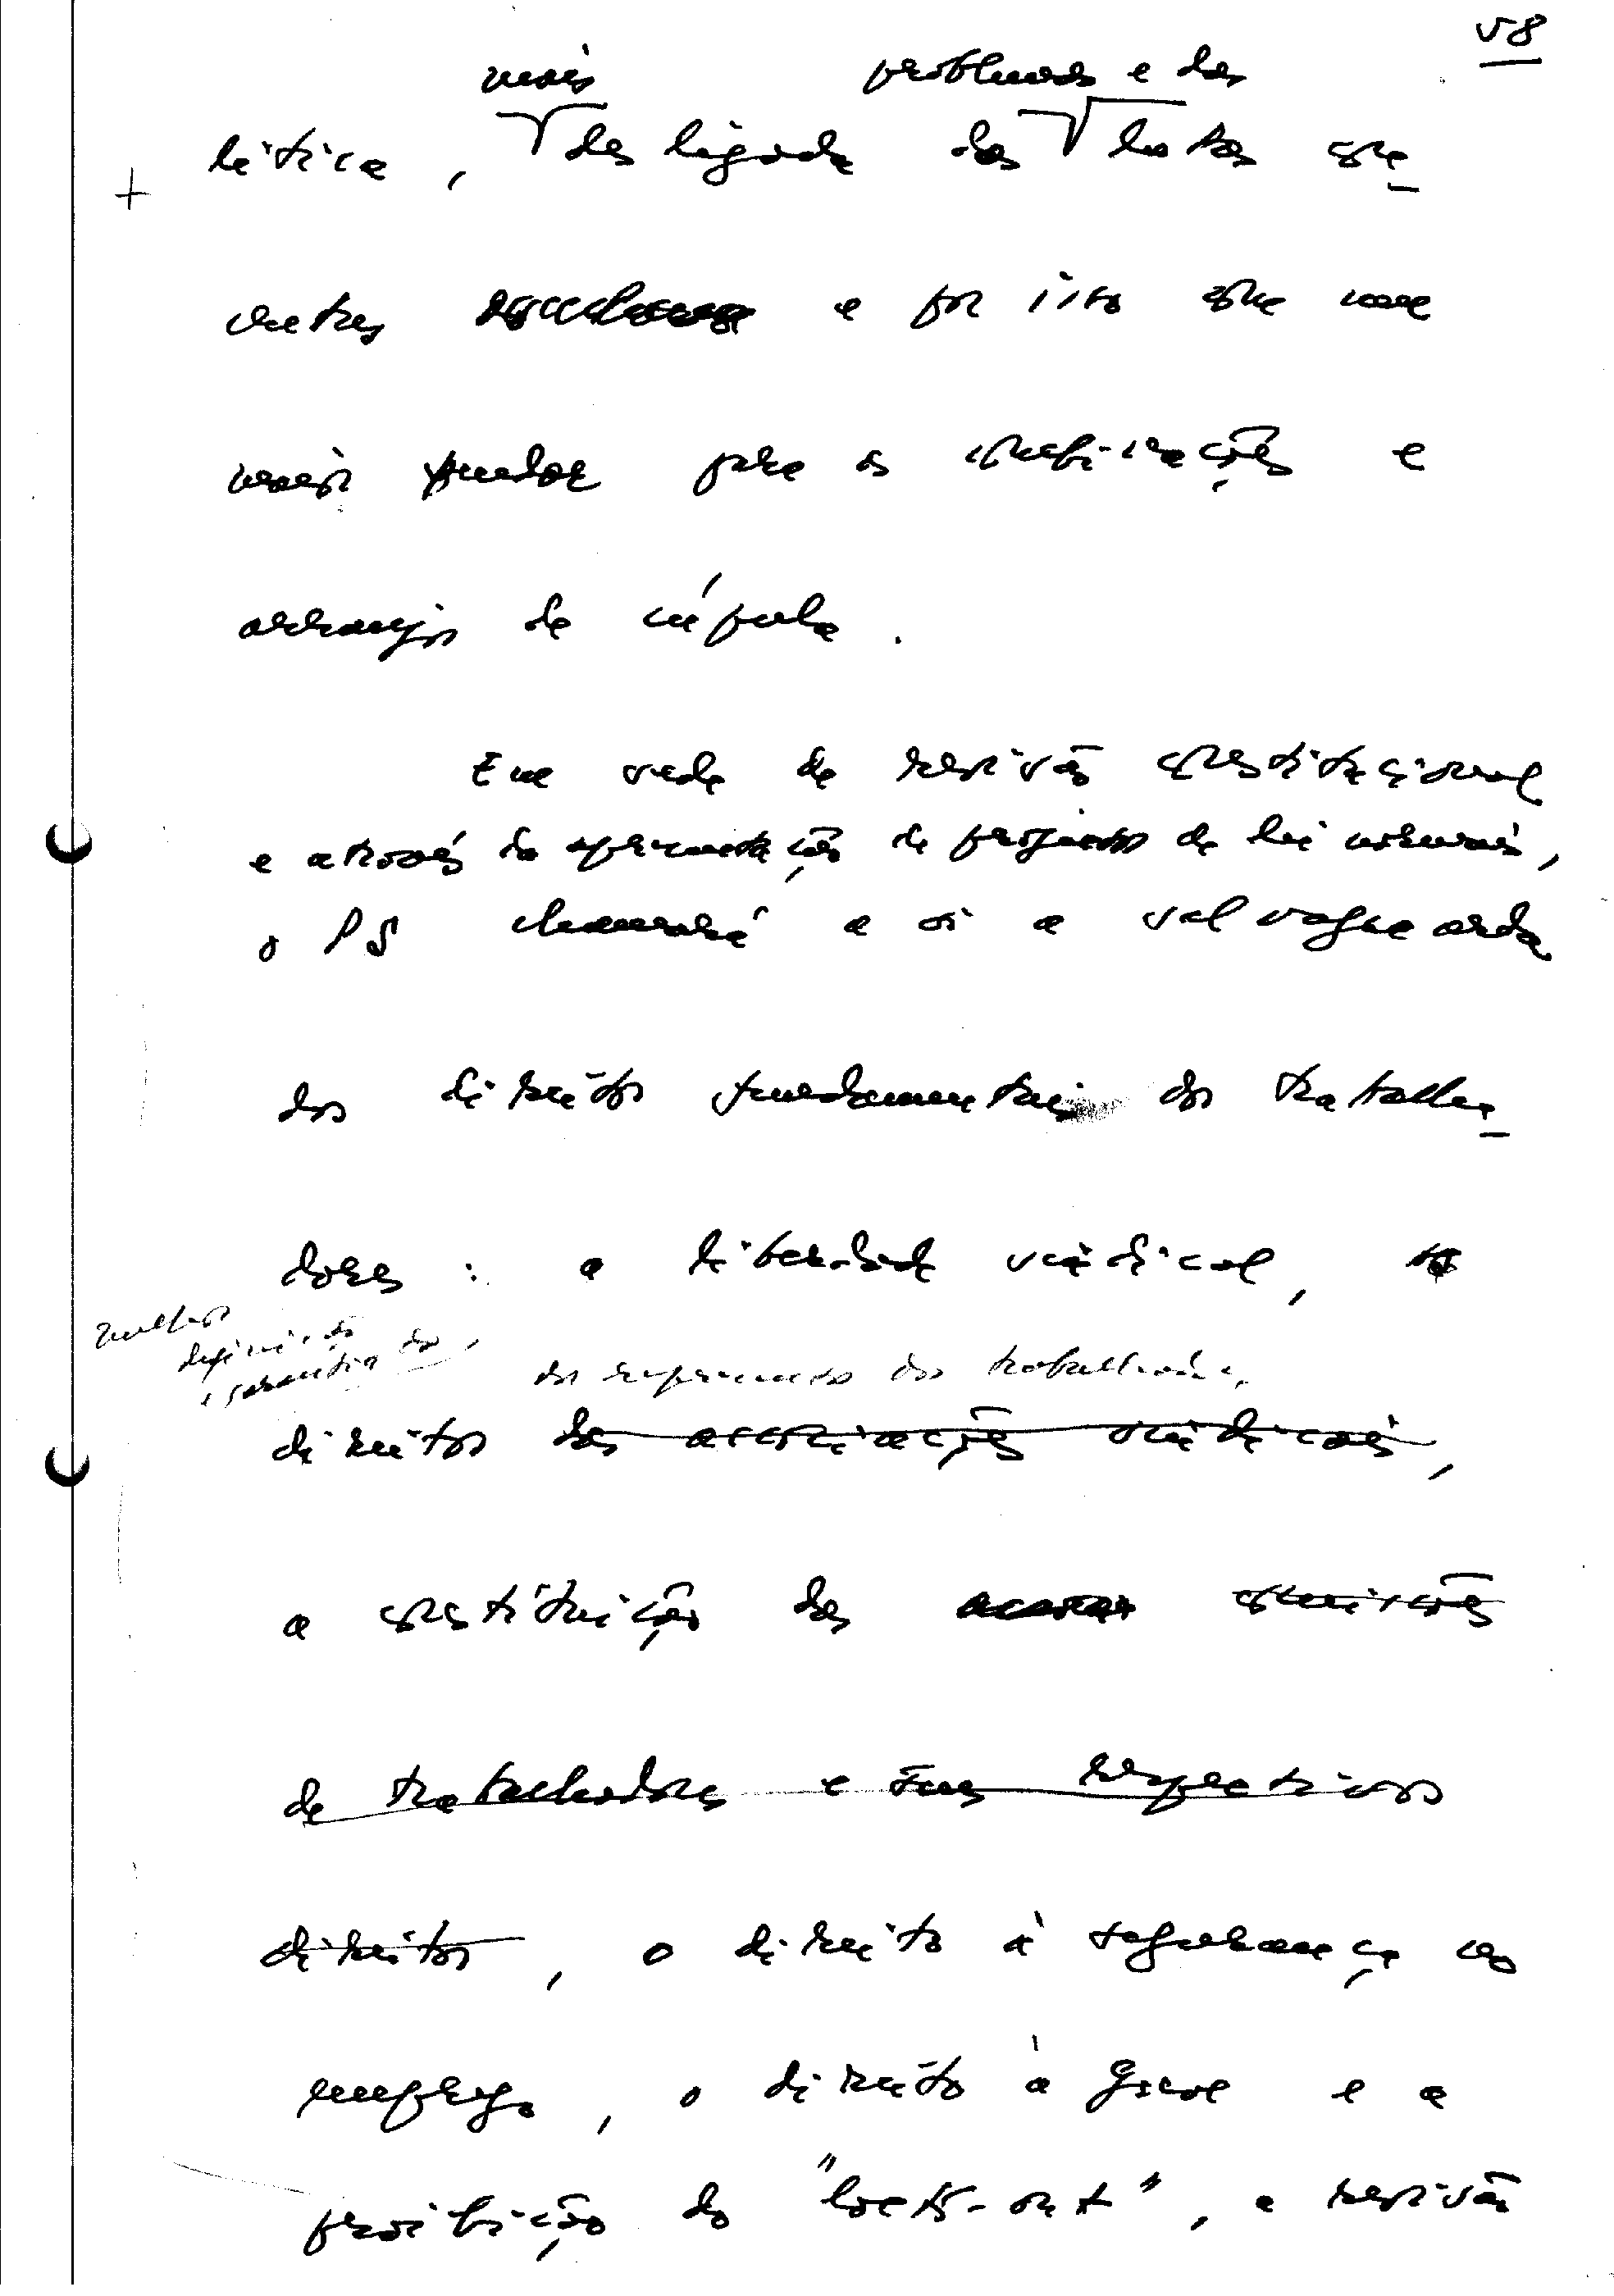 58
mais problemas e das
lítica, desligada das lutas con-
cretas e por isso com uma
maior pendor para as combinações e
arranjos de cúpula.
Em sede de revisão constitucional
e através da apresentação de projectos de lei normais,
o PS chamará a si a salvaguarda
dos direitos fundamentais dos trabalha-
dores: a liberdade sindical, os
melhor
definição
e garantia dos
dos representantes dos trabalhadores
direitos das associações sindicais,
a constituição das comissões
de trabalhadores e seus respectivos
direitos, o direito à segurança no
emprego, o direito à greve e a
proibição do "lock-out", a revisão